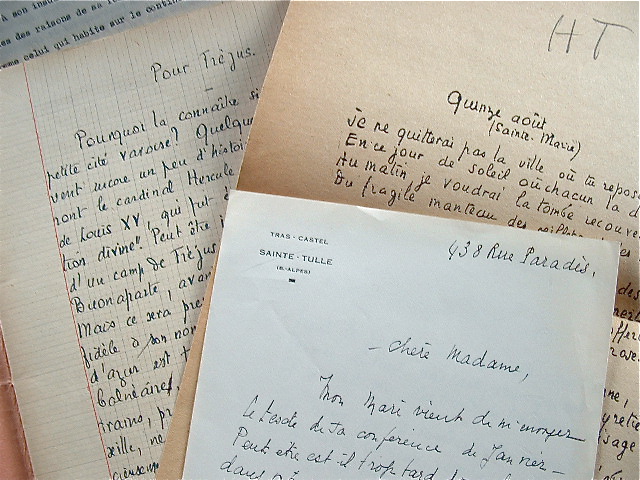 A son insu
es des raisons de sa
rme celui qui habite sur le contin
Pour Fréjus.
Pourquoi la connaître si
petite cité varoise? Quelque
vent encore un peu d'histoi
ront le cardinal Hercule
de Louis XV, "qui fut
tion divine". Peut être
d'un camp de Fréjus
Buonaparte, avan
Mais ce sera pre
fidèle à son nom
d'azur est
balnéaires,
ville, ne
HT
Quinze août
(Sainte Marie)
Je ne quitterai pas la ville où tu repose
En ce jour de soleil où chacun
Au matin je voudrai la tombe recouve
Du fragile manteau des
des
TRAS-CASTEL
SAINTE-TULLE
(B.-ALPES)
438 Rue Paradis,
- Chère Madame,
Mon Mari vient de m'envoyer
le texte de ta conférence de Janvier -
Peut être est-il trop tard
dans